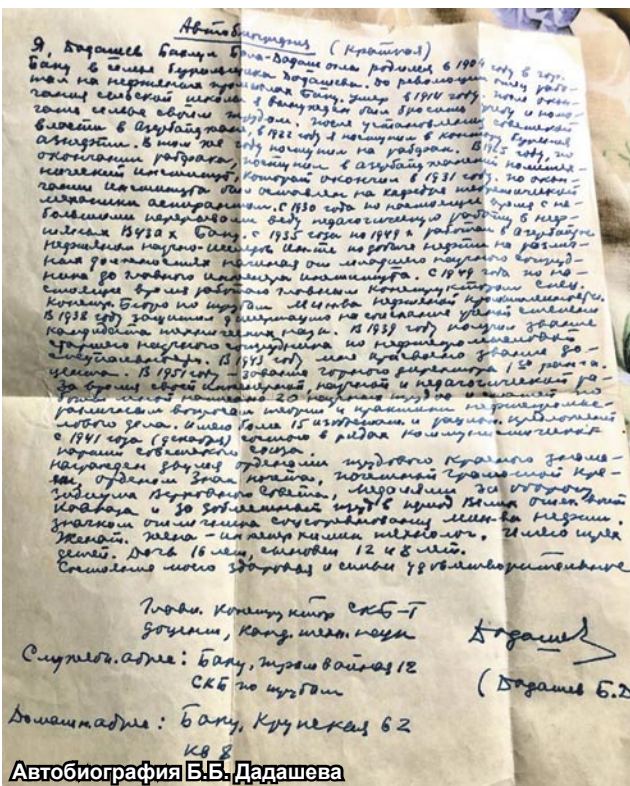 Автобиография (краткая)
Я, Дадашев Бабула Бала-Дадаш оглы родился в 1904 году в гор.
Баку в семье бурильщика Дадашева. До революции отец рабо-
тал на нефтяных промыслах Баку. умер в 1914 году. после окон-
чания сельской школы я вынужден был бросить учебу и помо-
гать семье своим трудом. после установления советской
власти в Азербайджане, в 1922 году я поступил в контору бурения
Азнефти. В том же году поступил на рабфак. В 1925 году, по
окончании рабфака, поступил в азербайджанский политех-
нический институт, который окончил в 1931 году. по окон-
чании института был оставлен на кафедре теоретической
механики аспирантом. С 1930 года по настоящее время с не-
большими перерывами веду педагогическую работу в неф-
тяных ВУЗах Баку. С 1935 года по 1949 г работал в Азербайдж.
нефтяном научно-исследов. ин-те по добыче нефти на различ-
ных должностях начиная от младшего научного сотруд-
ника до главного инженера института. С 1949 года по на-
стоящее время работаю главным конструктором спец.
Конст. Бюро по трубам Мин-ва нефтяной промышленности.
В 1938 году защитил диссертацию на соискание ученой степени
кандидата технических наук. В 1939 году получил звание
старшего научного сотрудника по нефтепромысловой
специальности. В 1943 году мне присвоено звание до-
цента. В 1951 году - звание горного директора 1го ранга.
За время своей инженерной, научной и педагогической ра-
боты мной написано 20 научных трудов и статей по
различным вопросам теории и практики нефтепромыс-
лового дела. имею более 15 изобретений и рацион. предложений
с 1941 года (декабрь) состою в рядах коммунистической
партии советского союза.
награжден двумя орденами трудового красного знаме-
ни, орденом Знак почета, почетной грамотой пре-
зидиума Верховного Совета, медалями За оборону
Кавказа и за доблестный труд в период В/войны
значком отличника соцсоревнования мин-ва нефти.
Женат. жена - инженер химик технолог. Имею трех
детей. Дочь 16 лет, сыновей 12 и 8 лет.
Состояние моего здоровья и семьи удовлетворительное
Главн. Конструктор СКБ-Т
доцент, канд. техн. наук Дадашев
Служебн. адрес: Баку, трамвайная 12
СКБ по трубам (Дадашев Б.
Домашн. адрес: Баку, Крупская 62
кв 8
Автобиография Б.Б. Дадашева